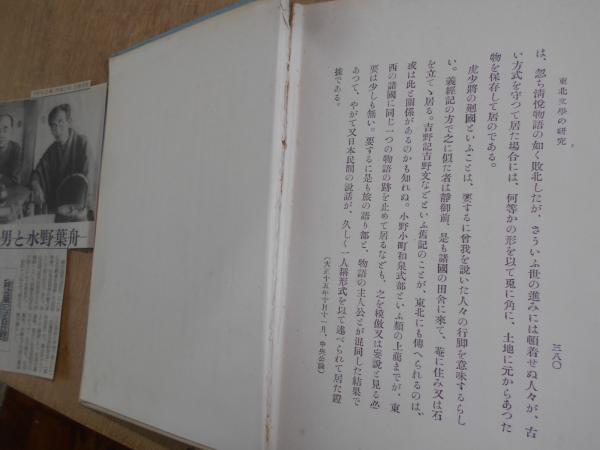 東北文學の硏究
三八〇
は、忽ち淸悅物語の如く敗北したが、さういふ世の進みには頓着せぬ人々が、古
い方式を守つて居た場合には、何等かの形を以て兎に角に、土地に元からあつた
物を保存して居のである。
虎少將の廻國といふことは、要するに曾我を說いた人々の行脚を意味するらし
い。義經記の方で之に似た者は靜御前、是も諸國の田舍に來て、菴に住み又は石
を立てゝ居る。吉野記吉野文などといふ舊記のことが、東北にも傳へられるのは、
或は此と關係があるのかも知れぬ。小野小町和泉式部といふ類の上﨟までが、東
西の諸國に同じ一つの物語の跡を止めて居るなども、之を模倣又は妄說と見る必
要は少しも無い。要するに是も旅の語り部と、物語の主人公とが混同した結果で
あつて、やがて又日本民間の說話が、久しく一人稱形式を以て述べられて居た證
據である。
（大正十五年十月十一月、中央公論）
男と水野葉舟